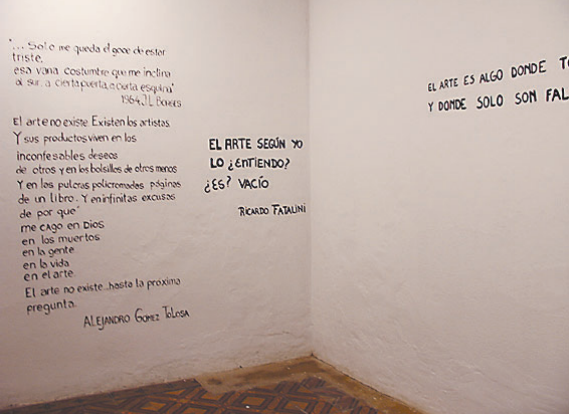 "... Solo me queda el goce de estar
triste,
esa vana costumbre que me inclina
al sur, a cierta puerta, a cierta esquina"
1964, J.L Borges
El arte no existe. Existen los artistas.
Y sus productos viven en los
inconfesables deseos
de otros y en los bolsillos de otros menos
Y en las pulcras policromadas páginas
de un libro. Y en infinitas excusas
de por que
me cago en Dios
en los muertos
en la gente
en la vida
en el arte.
El arte no existe...hasta la próxima
pregunta.
ALEJANDRO GOMEZ TOLOSA
EL ARTE SEGÚN YO
LO ¿ENTIENDO?
¿ES? VACÍO
RICARDO FATALINI
EL ARTE ES ALGO DONDE
Y DONDE SOLO SON